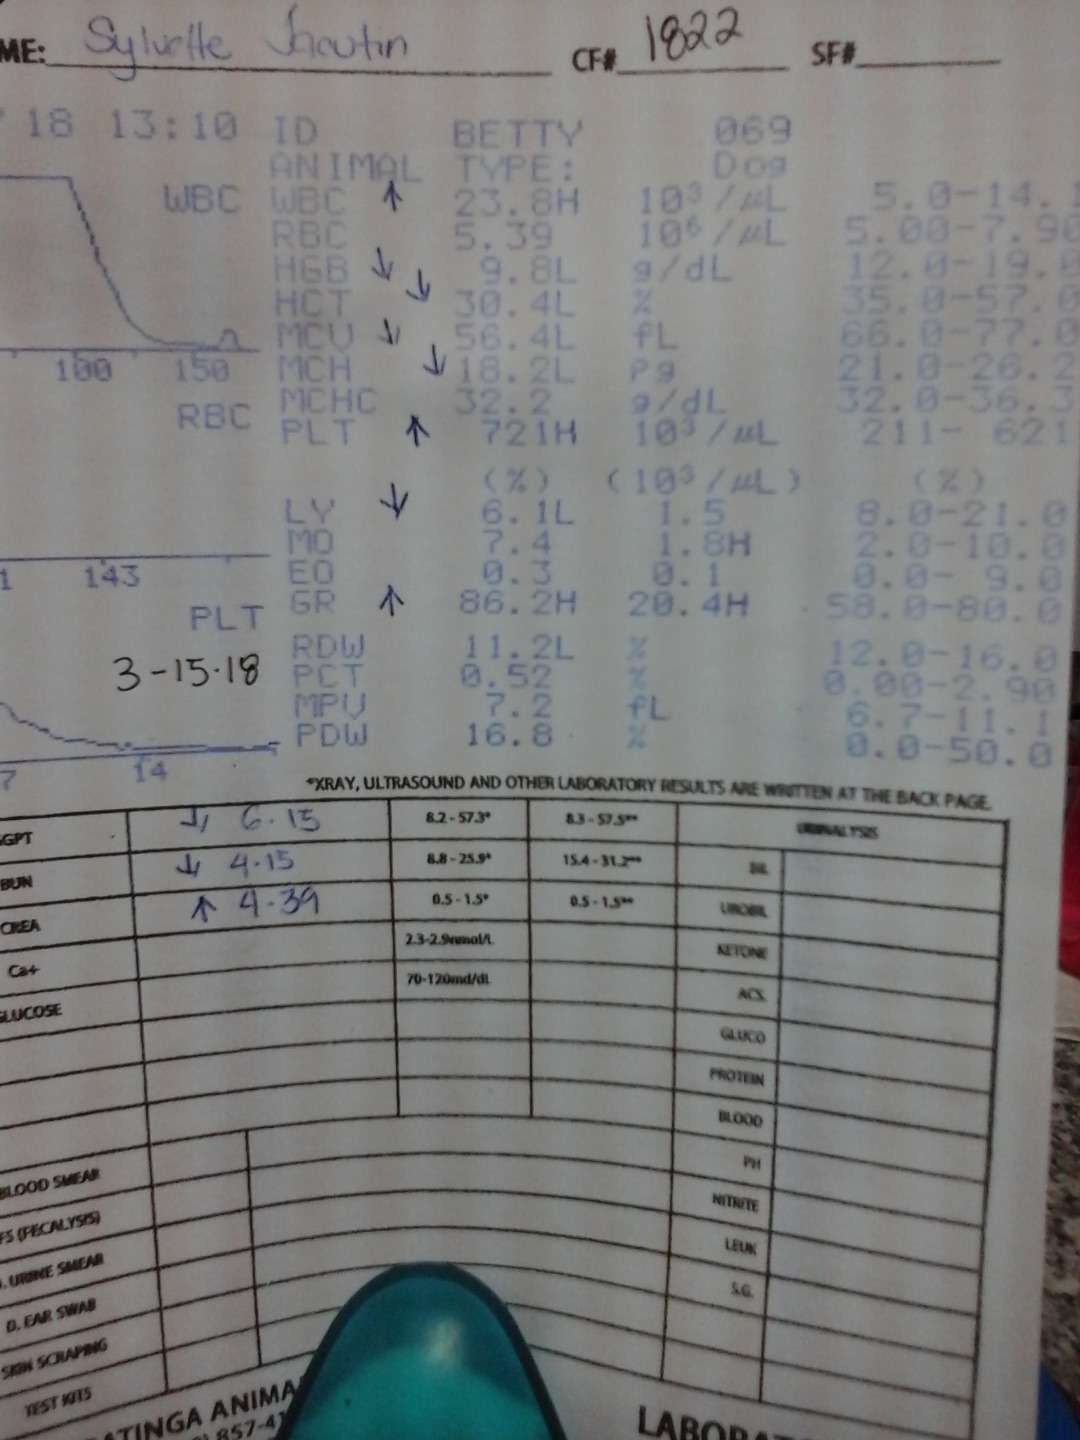 ME: Sylvette CF# 1822 SF#
18 13:10 ID BETTY 069
ANIMAL TYPE: Dog
WBC WBC ↑ 23.8H 10³/µL 5.0-14.1
RBC 5.39 10⁶/µL 5.00-7.90
HGB ↓ 9.8L g/dL 12.0-19.0
HCT ↓ 30.4L % 35.0-57.0
MCV ↓ 56.4L fL 66.0-77.0
100 150 MCH ↓ 18.2L pg 21.0-26.2
RBC MCHC 32.2 g/dL 32.0-36.3
PLT ↑ 721H 10³/µL 211- 621
(%) (10³/µL) (%)
LY ↓ 6.1L 1.5 8.0-21.0
MO 7.4 1.8H 2.0-10.0
1 143 EO 0.3 0.1 0.0- 9.0
PLT GR ↑ 86.2H 20.4H 58.0-80.0
RDW 11.2L % 12.0-16.0
3-15-18 PCT 0.52 % 0.00-2.90
MPV 7.2 fL 6.7-11.1
PDW 16.8 % 0.0-50.0
7 14
*XRAY, ULTRASOUND AND OTHER LABORATORY RESULTS ARE WRITTEN AT THE BACK PAGE.
GPT ↓ 6.15 8.2 - 57.3* 8.3 - 57.5** URINALYSIS
BUN ↓ 4.15 8.8 - 25.9* 15.4 - 31.2** BIL
CREA ↑ 4.39 0.5 - 1.5* 0.5 - 1.5** UROBIL
Ca+ 2.3-2.9nmol/L KETONE
GLUCOSE 70-120md/dL ACS.
GLUCO
PROTEIN
BLOOD
BLOOD SMEAR PH
FS (FECALYSIS) NITRITE
. URINE SMEAR LEUK
D. EAR SWAB S.G.
SKIN SCRAPING
TEST KITS
ATINGA ANIMA
857-4 LABORAT